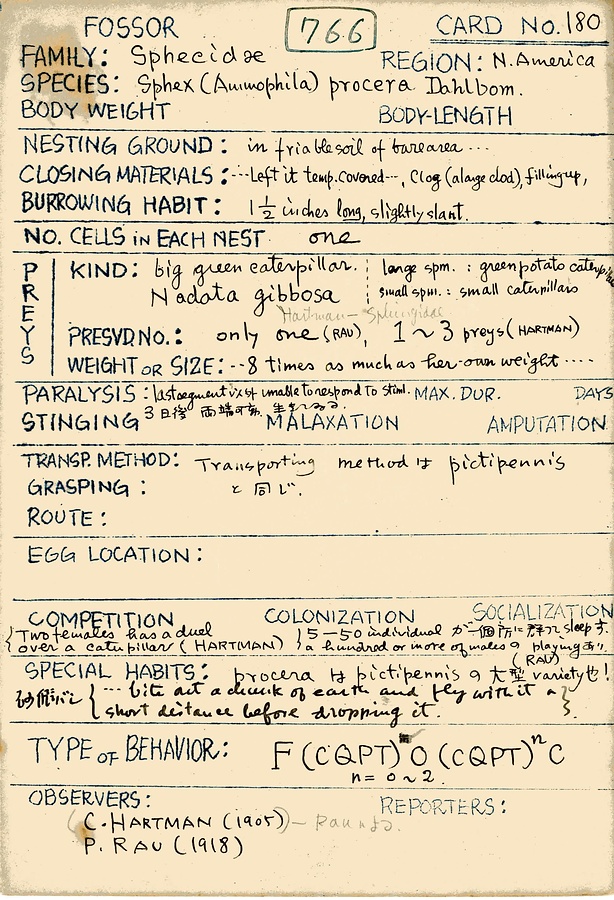 FOSSOR 766 CARD No. 180
FAMILY: Sphecidae REGION: N. America
SPECIES: Sphex (Ammophila) procera Dahlbom.
BODY WEIGHT BODY-LENGTH
NESTING GROUND: in friable soil of bare area ...
CLOSING MATERIALS: ...Left it temp. covered..., Clog (a large clod), filling up,
BURROWING HABIT: 1 1/2 inches long, slightly slant.
NO. CELLS in EACH NEST one
PREYS
KIND: big green caterpillar. large spm. : green potato
Nadata gibbosa small spm. : small caterpillars
Hartman — Sphingidae
PRESVD NO.: only one (RAU), 1~3 preys (HARTMAN)
WEIGHT OR SIZE: --8 times as much as her own weight ....
PARALYSIS: last segment unable to respond to stiml. MAX. DUR. DAYS
STINGING 3日後 両端可動 MALAXATION AMPUTATION
TRANSP. METHOD: Transporting method は pictipennis
GRASPING: と同じ.
ROUTE:
EGG LOCATION:
COMPETITION COLONIZATION SOCIALIZATION
{Two females has a duel {5—50 individual が一個所に群って sleep す.
over a caterpillar (HARTMAN) a hundred or more of males の playing あり.
(RAU)
SPECIAL HABITS: procera は pictipennis の大型 variety也!
{ ... bite out a chunk of earth and fly with it a
short distance before dropping it. }
TYPE OF BEHAVIOR: F(CQPT)O(CQPT)ⁿC
n = 0~2.
OBSERVERS: REPORTERS:
(C. HARTMAN (1905))— Rau
P. RAU (1918)